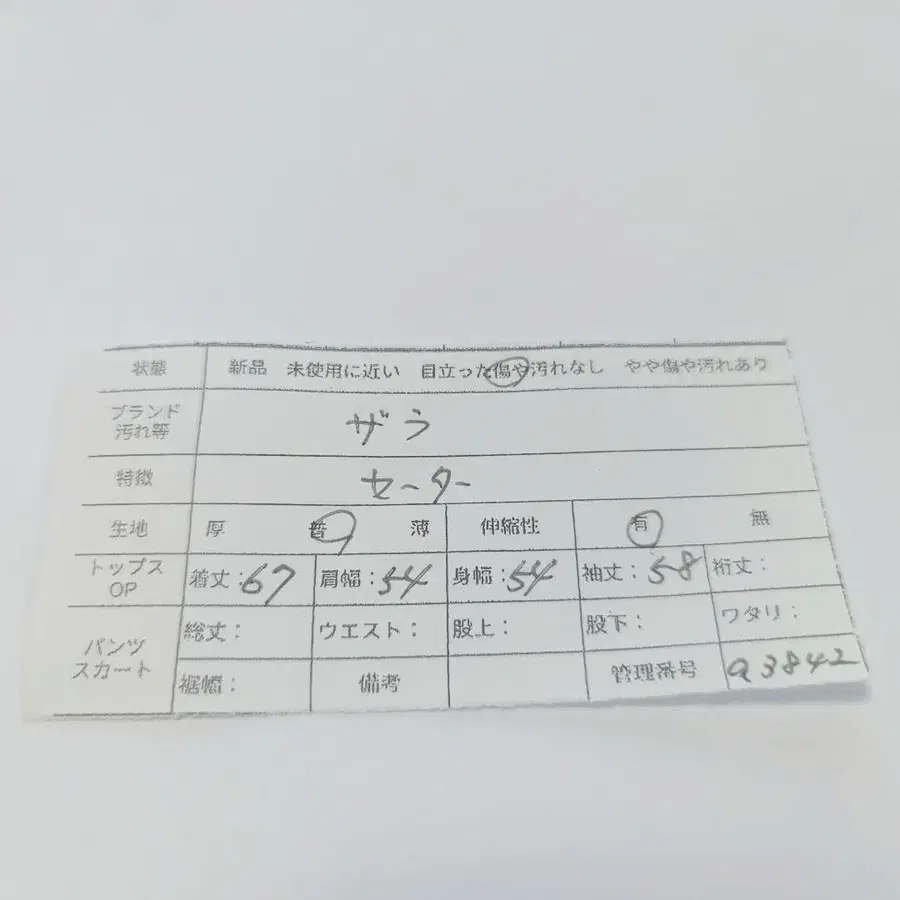 状態 新品 未使用に近い 目立った傷や汚れなし やや傷や汚れあり
ブランド
汚れ等
ザラ
特徴 セーター
生地 厚 普 薄 伸縮性 有 無
トップス
OP
着丈:67 肩幅:54 身幅:54 袖丈:58 裄丈:
パンツ
スカート
総丈: ウエスト: 股上: 股下: ワタリ:
裾幅: 備考 管理番号 a3842